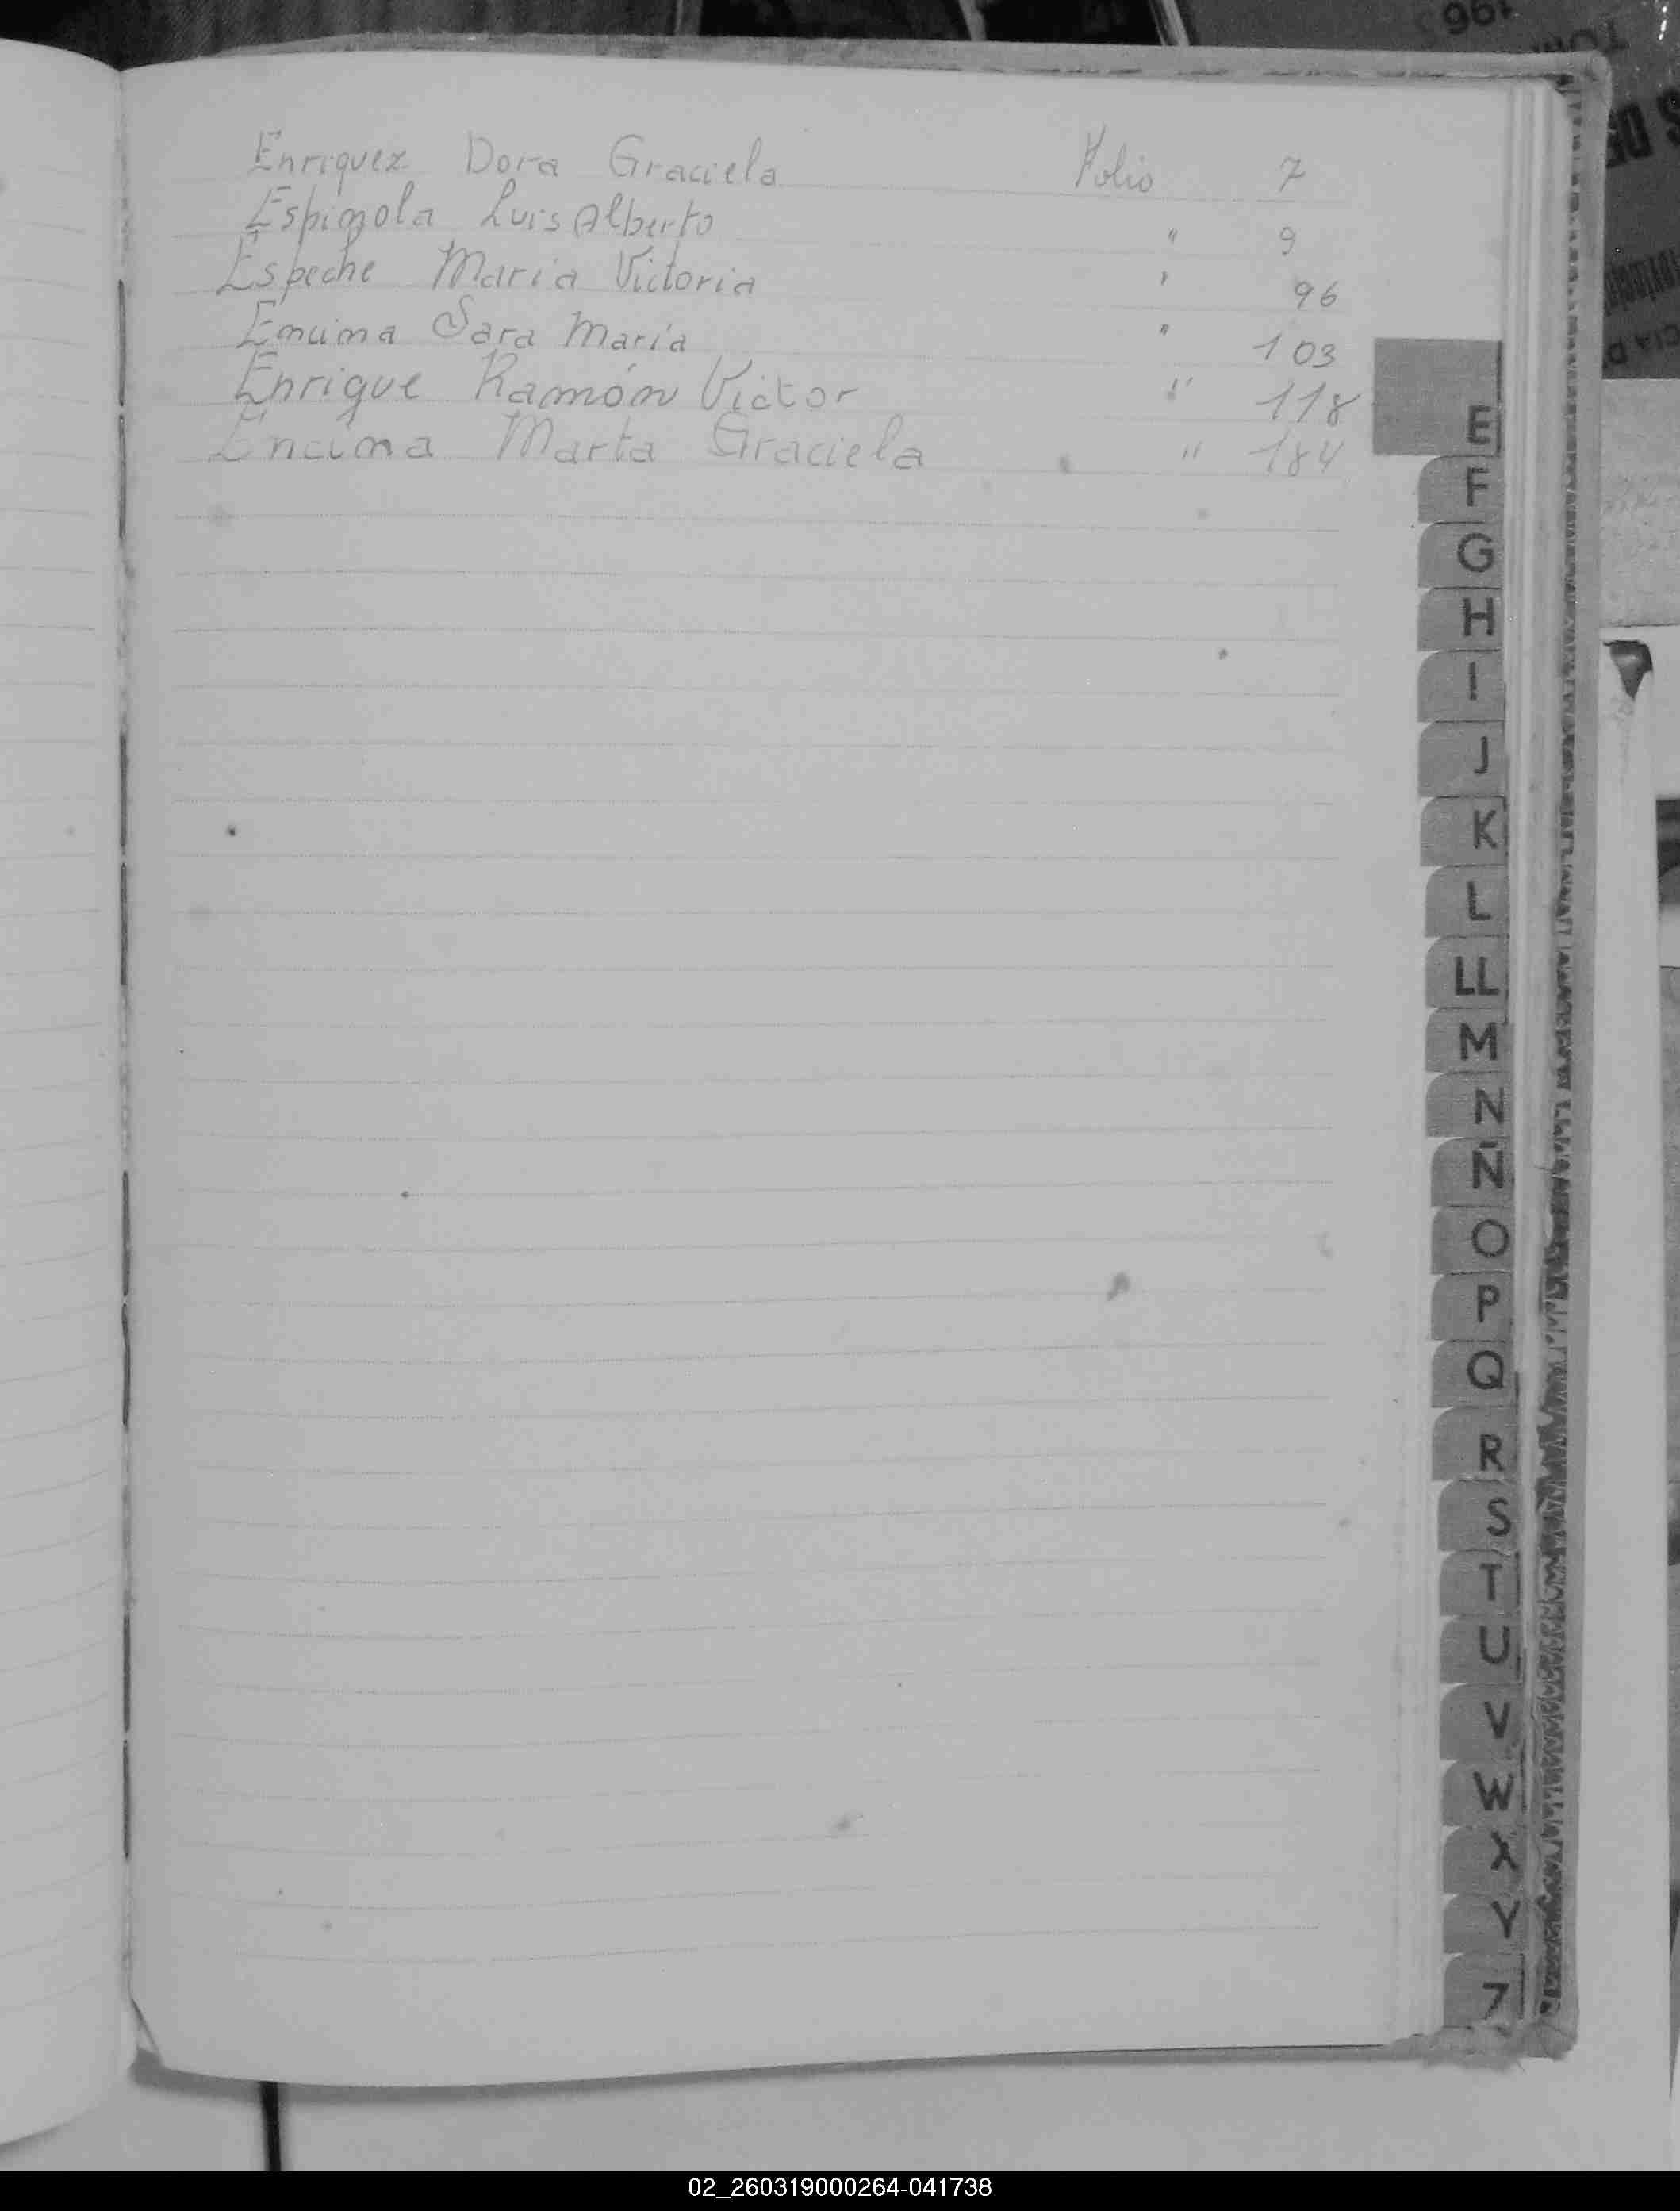 Enriquez Dora Graciela Folio 7
Espinola Luis Alberto " 9
Espeche María Victoria " 96
Encina Sara María " 103
Enrique Ramón Victor " 118
Encina Marta Graciela " 184
E
F
G
H
I
J
K
L
LL
M
N
Ñ
O
P
Q
R
S
T
U
V
W
X
Y
Z
02_260319000264-041738